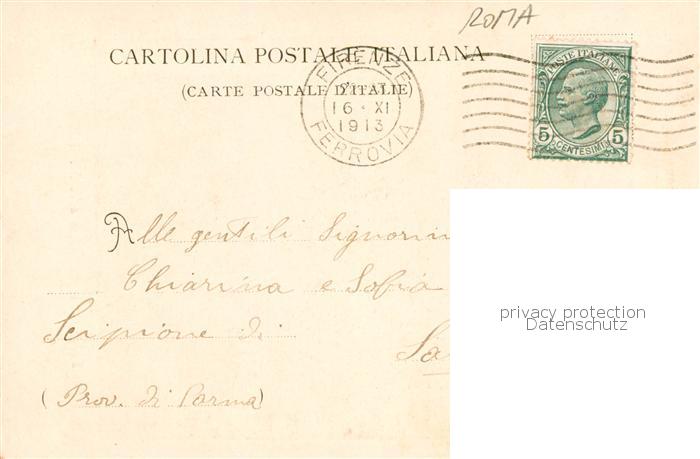 ROMA
CARTOLINA POSTALE ITALIANA
(CARTE POSTALE D'ITALIE)
FIRENZE
16·XI
1913
FERROVIA
POSTE ITALIANE
5 5
CENTESIMI
Alle gentili Signorin
Chiarina e Sofia
Scipione di
Sa
(Prov. di Parma)
privacy protection
Datenschutz